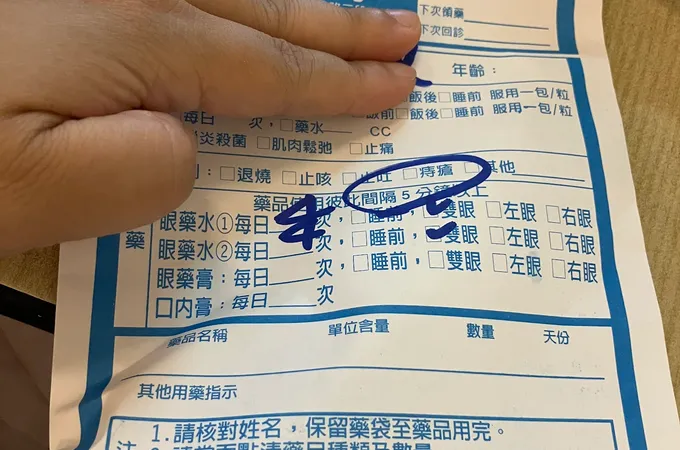 下次領藥
下次回診
年齡：
飯後□睡前 服用一包/粒
每日 次，□藥水 CC 飯前□飯後□睡前 服用一包/粒
炎殺菌 □肌肉鬆弛 □止痛
：□退燒 □止咳 □止吐 □痔瘡 □其他
藥品使用彼此間隔5分鐘以上
藥
眼藥水①每日 4 次，□睡前，□雙眼 □左眼 □右眼
眼藥水②每日 次，□睡前，□雙眼 □左眼 □右眼
眼藥膏：每日 次，□睡前，□雙眼 □左眼 □右眼
口內膏：每日 次
藥品名稱 單位含量 數量 天份
其他用藥指示
1.請核對姓名，保留藥袋至藥品用完。
注